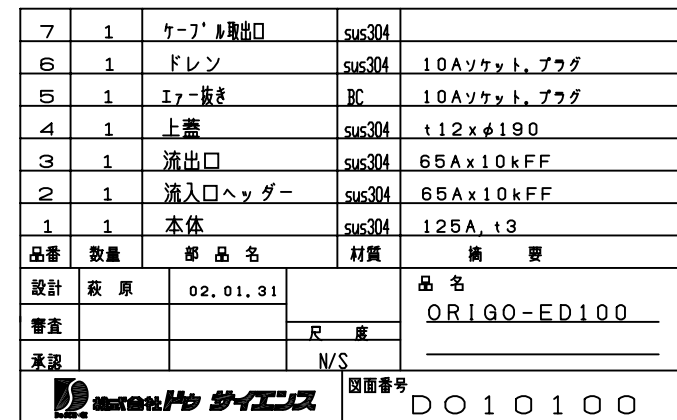 7 1 ケーブル取出口 sus304
6 1 ドレン sus304 10Aソケット．プラグ
5 1 エアー抜き BC 10Aソケット．プラグ
4 1 上蓋 sus304 t12xφ190
3 1 流出口 sus304 65Ax10kFF
2 1 流入口ヘッダー sus304 65Ax10kFF
1 1 本体 sus304 125A, t3
品番 数量 部品名 材質 摘要
設計 萩原 02.01.31 品名
ORIGO-ED100
審査 尺度
承認 N/S
株式会社ドゥ サイエンス 図面番号
DO10100